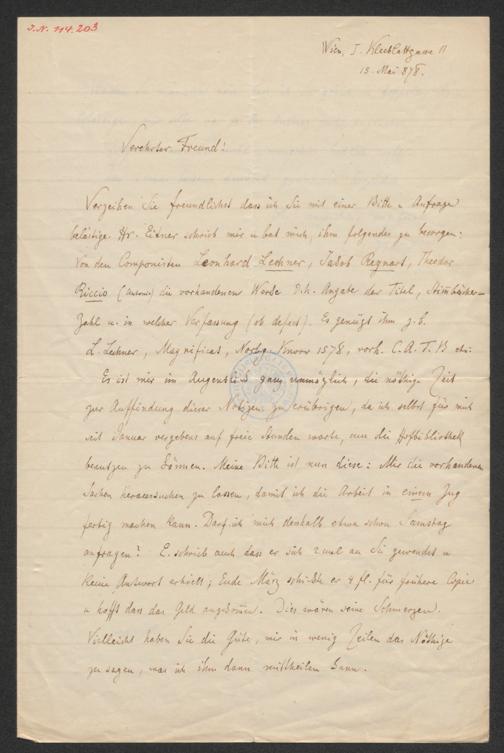 I.N. 114.203
Wien, I. Kleeblattgasse 11
13. Mai 878.
Verehrter Freund!
Verzeihen Sie freundlichst dass ich Sie mit einer Bitte u Anfrage
belästige. Hr. Eitner schrieb mir u bat mich, ihm folgendes zu besorgen:
Von den Componisten Leonhard Lechner, Jakob Regnart, Theodor
Riccio (Autor) die vorhandenen Werke d.h. Angabe der Titel, Stimbücher-
Zahl u. in welcher Verfassung (ob defect). Es genügt ihm z.b.
L. Lechner, Magnificat, 1578, vorh. C. A. T. B etc.
Es ist mir im Augenblick ganz unmöglich, die nöthige Zeit
zur Auffindung dieser Notizen zu erübrigen, da ich selbst für mich
seit Januar vergebens auf freie Stunden warte, um die Hofbibliothek
benutzen zu können. Meine Bitte ist nun diese: Mir die vorhandenen
Sachen heraussuchen zu lassen, damit ich die Arbeit in einem Zug
fertig machen kann. Darf ich mich desshalb etwa schon Samstag
anfragen? E. schrieb auch dass er sich 2mal an Sie gewendet u
keine Antwort erhielt; Ende März schickte er 4 fl. für frühere Copie
u hofft dass das Geld angekommen. Dies wären seine Schmerzen.
Vielleicht haben Sie die Güte, mir in wenig Zeilen das Nöthige
zu sagen, was ich ihm dann mittheilen kann.